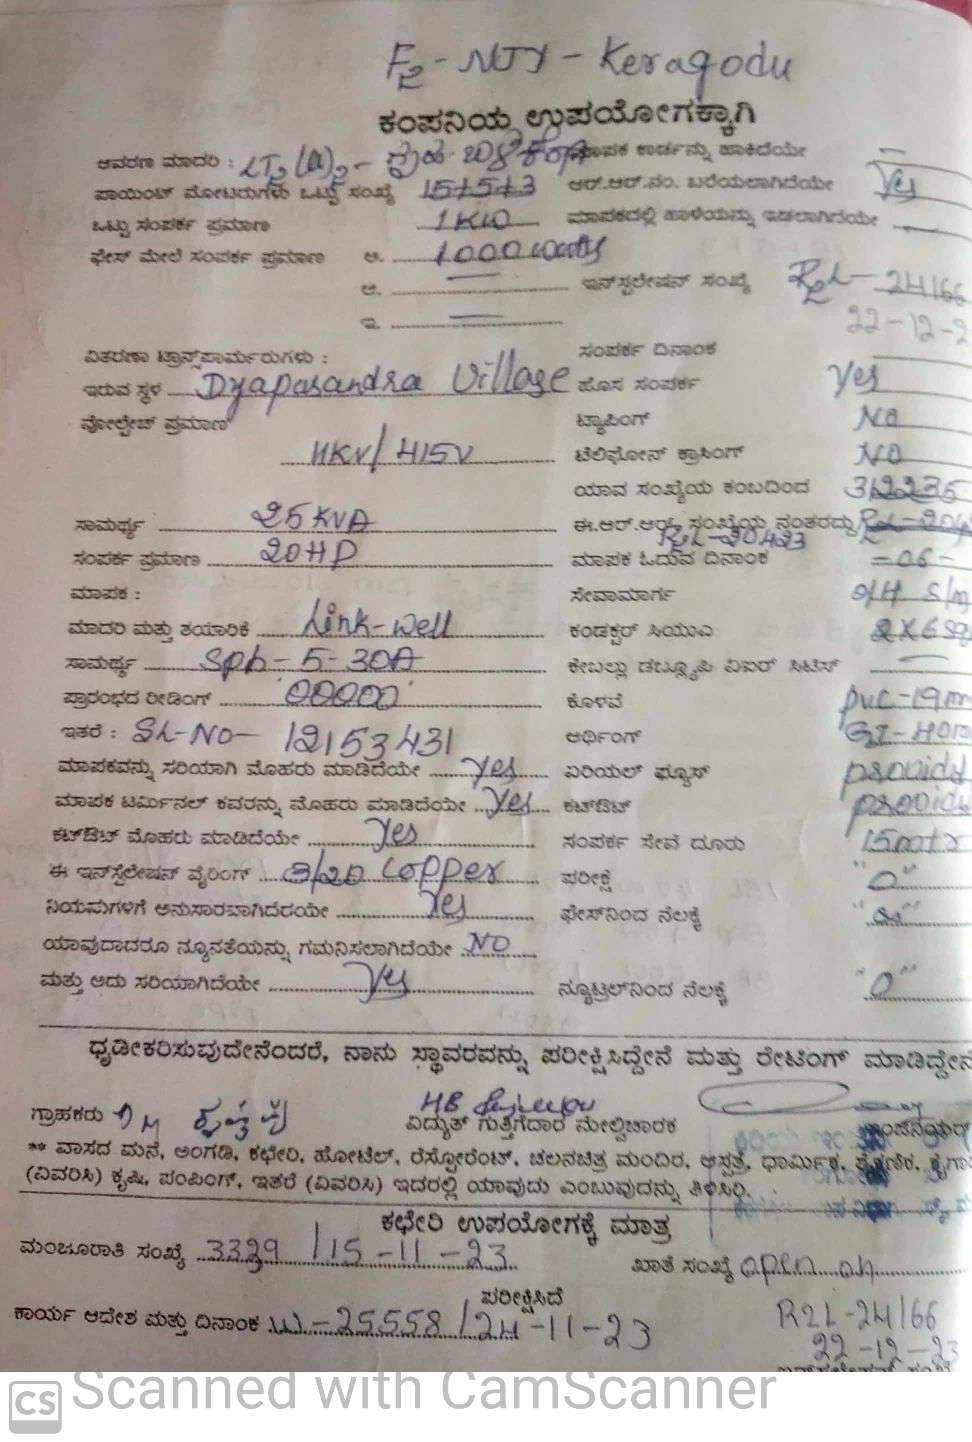 F2 - NJY - Keragodu
ಕಂಪನಿಯ ಉಪಯೋಗಕ್ಕಾಗಿ
ಆವರಣ ಮಾದರಿ : LT2 (a)2 - ಮಾಪಕ ಕಾರ್ಡನ್ನು ಹಾಕಿದೆಯೇ
ಪಾಯಿಂಟ್ ಮೋಟರುಗಳು ಒಟ್ಟು ಸಂಖ್ಯೆ ಆರ್.ಆರ್.ನಂ. ಬರೆಯಲಾಗಿದೆಯೇ Yes
ಒಟ್ಟು ಸಂಪರ್ಕ ಪ್ರಮಾಣ 1 KW ಮಾಪಕದಲ್ಲಿ ಹಾಳೆಯನ್ನು ಇಡಲಾಗಿದೆಯೇ
ಫೇಸ್ ಮೇಲೆ ಸಂಪರ್ಕ ಪ್ರಮಾಣ ಅ. 1000 watts
ಆ. ಇನ್‌ಸ್ಟಲೇಷನ್ ಸಂಖ್ಯೆ R2L - 24166
ಇ. 22-12-2
ವಿತರಣಾ ಟ್ರಾನ್ಸ್‌ಫಾರ್ಮರುಗಳು : ಸಂಪರ್ಕ ದಿನಾಂಕ
ಇರುವ ಸ್ಥಳ Dyapasandra Village ಹೊಸ ಸಂಪರ್ಕ Yes
ವೋಲ್ಟೇಜ್ ಪ್ರಮಾಣ ಟ್ಯಾಪಿಂಗ್ NO
11KV/415V ಟೆಲಿಫೋನ್ ಕ್ರಾಸಿಂಗ್ NO
ಯಾವ ಸಂಖ್ಯೆಯ ಕಂಬದಿಂದ 312235
ಸಾಮರ್ಥ್ಯ 25 KVA ಈ.ಆರ್.ಆರ್. ಸಂಖ್ಯೆಯ ನಂತರದ್ದು R2L-204
R2L-20423
ಸಂಪರ್ಕ ಪ್ರಮಾಣ 20HP ಮಾಪಕ ಓದುವ ದಿನಾಂಕ -06-
ಮಾಪಕ : ಸೇವಾಮಾರ್ಗ O/H S/m
ಮಾದರಿ ಮತ್ತು ತಯಾರಿಕೆ Link-Well ಕಂಡಕ್ಟರ್ ಸಿಯುಎ 2X6 Sq
ಸಾಮರ್ಥ್ಯ Sph-5-30A ಕೇಬಲ್ಲು ಡಬ್ಲ್ಯೂಪಿ ವಿಐಆರ್ ಸಿಟಿಸ್
ಪ್ರಾರಂಭದ ರೀಡಿಂಗ್ 00000 ಕೊಳವೆ PVC-19m
ಇತರೆ : SL-NO- 12153431 ಆರ್ಥಿಂಗ್
ಮಾಪಕವನ್ನು ಸರಿಯಾಗಿ ಮೊಹರು ಮಾಡಿದೆಯೇ Yes ಏರಿಯಲ್ ಫ್ಯೂಸ್
ಮಾಪಕ ಟರ್ಮಿನಲ್ ಕವರನ್ನು ಮೊಹರು ಮಾಡಿದೆಯೇ Yes ಕಟ್‌ಔಟ್
ಕಟ್‌ಔಟ್ ಮೊಹರು ಮಾಡಿದೆಯೇ Yes ಸಂಪರ್ಕ ಸೇವೆ ದೂರು 15mtr
ಈ ಇನ್‌ಸ್ಟೆಲೇಷನ್ ವೈರಿಂಗ್ 3/20 Copper ಪರೀಕ್ಷೆ "0"
ನಿಯಮಗಳಿಗೆ ಅನುಸಾರವಾಗಿದೆರಯೇ Yes ಫೇಸ್‌ನಿಂದ ನೆಲಕ್ಕೆ
ಯಾವುದಾದರೂ ನ್ಯೂನತೆಯನ್ನು ಗಮನಿಸಲಾಗಿದೆಯೇ NO
ಮತ್ತು ಅದು ಸರಿಯಾಗಿದೆಯೇ Yes ನ್ಯೂಟ್ರಲ್‌ನಿಂದ ನೆಲಕ್ಕೆ "0"
ಧೃಡೀಕರಿಸುವುದೇನೆಂದರೆ, ನಾನು ಸ್ಥಾವರವನ್ನು ಪರೀಕ್ಷಿಸಿದ್ದೇನೆ ಮತ್ತು ರೇಟಿಂಗ್ ಮಾಡಿದ್ದೇನೆ
ಗ್ರಾಹಕರು ವಿದ್ಯುತ್ ಗುತ್ತಿಗೆದಾರ ಮೇಲ್ವಿಚಾರಕ
** ವಾಸದ ಮನೆ, ಅಂಗಡಿ, ಕಛೇರಿ, ಹೋಟೆಲ್, ರೆಸ್ಟೋರೆಂಟ್, ಚಲನಚಿತ್ರ ಮಂದಿರ, ಆಸ್ಪತ್ರೆ, ಧಾರ್ಮಿಕ, ಶೈಕ್ಷಣಿಕ, ಕೈಗಾ
(ವಿವರಿಸಿ) ಕೃಷಿ, ಪಂಪಿಂಗ್, ಇತರೆ (ವಿವರಿಸಿ) ಇದರಲ್ಲಿ ಯಾವುದು ಎಂಬುವುದನ್ನು ತಿಳಿಸಿರಿ.
ಕಛೇರಿ ಉಪಯೋಗಕ್ಕೆ ಮಾತ್ರ
ಮಂಜೂರಾತಿ ಸಂಖ್ಯೆ 3329 /15-11-23 ಖಾತೆ ಸಂಖ್ಯೆ open on
ಪರೀಕ್ಷಿಸಿದೆ
ಕಾರ್ಯ ಆದೇಶ ಮತ್ತು ದಿನಾಂಕ W-25558/24-11-23 R2L-24166
22-12-23
CS Scanned with CamScanner